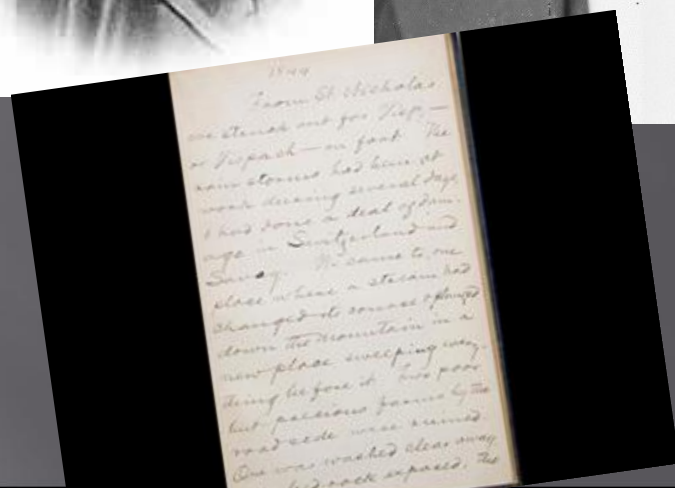 From St Nicholas
we struck out for Visp,—
or Vispach—on foot. The
rain storms had been at
work during several days,
& had done a deal of dam-
age in Switzerland and
Savoy. We came to one
place where a stream had
changed its course & plunged
down the mountain in a
new place, sweeping every-
thing before it. Two poor
but precious farms by the
road side were ruined.
One was washed clear away
bed rock exposed. The